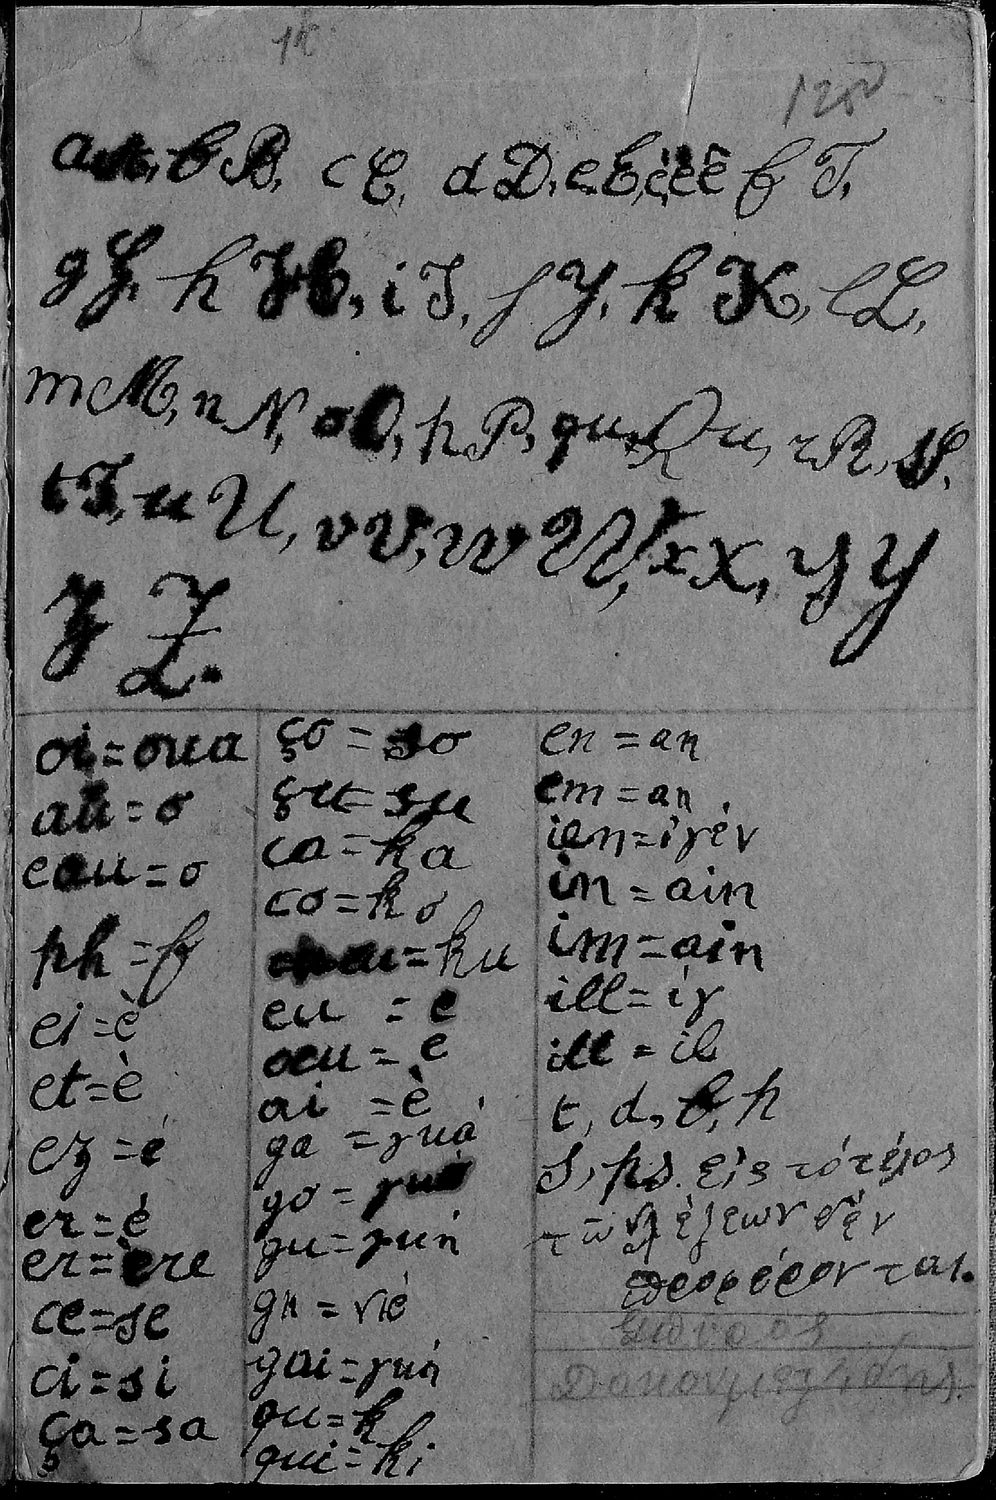 a A, b B, c C, d D, e E, é è ê f F,
g G, h H, i I, j J, k K, l L,
m M, n N, o O, p P, qu, Qu, r R, s S,
t T, u U, v V, w W, x X, y Y
z Z.
oi = oua
au = o
eau = o
ph = f
ei = è
et = è
ez = é
er = é
er = ère
ce = se
ci = si
ça = sa
ço = so
çu = su
ca = ka
co = ko
= ku
eu = e
oeu = e
ai = è
ga = γκά
go = γκό
gu = γκιή
gn = νιέ
gui = γκή
qu = k
qui = ki
en = an
em = an
ien = ιγέν
in = ain
im = ain
ill = ίγ
ill = il
t, d, b, p
s, ps. εἰς τό τέλος
τῶν λέξεων δέν
προφέρονται.